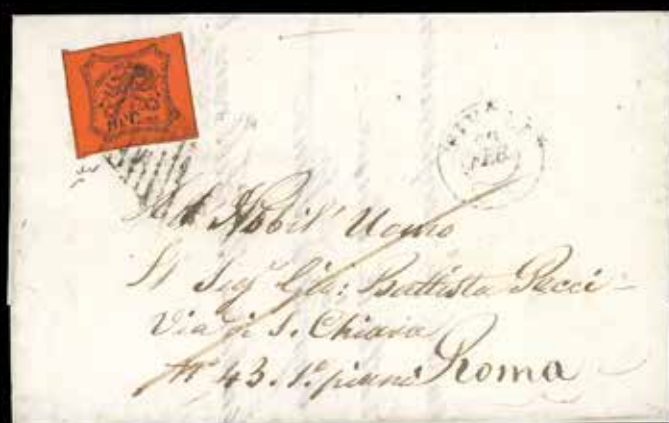 FEB
All Nobil' Uomo
Il Sigr Gio: Battista Pecci
Via di S. Chiara
No 43. 1o piano Roma